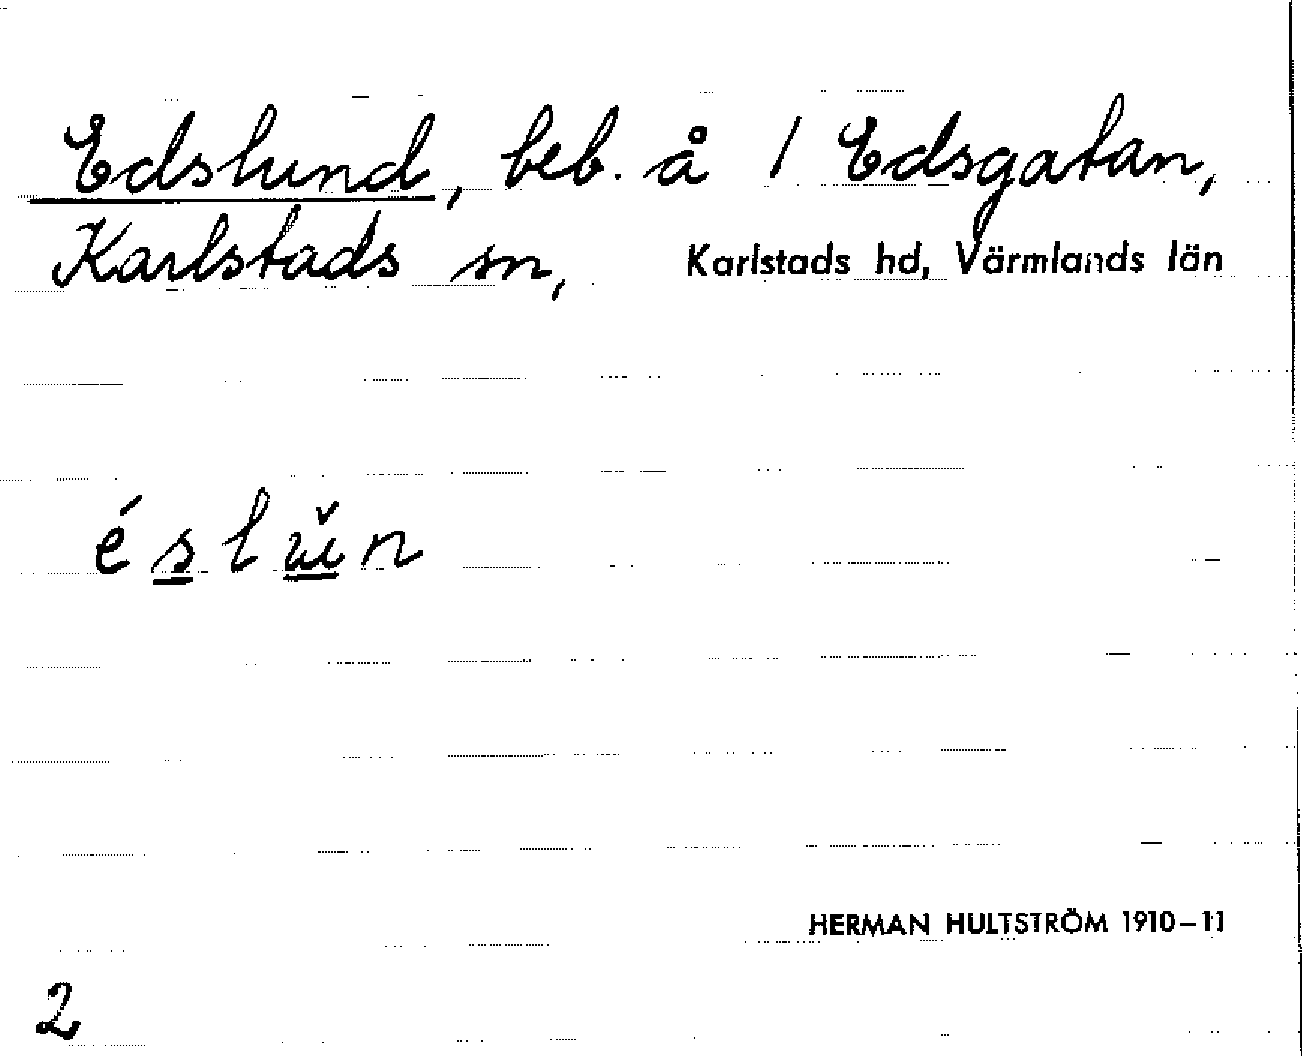 Edslund, beb. å 1 Edsgatan,
Karlstads sn, Karlstads hd, Värmlands län
éslŭn
HERMAN HULTSTRÖM 1910-11
2